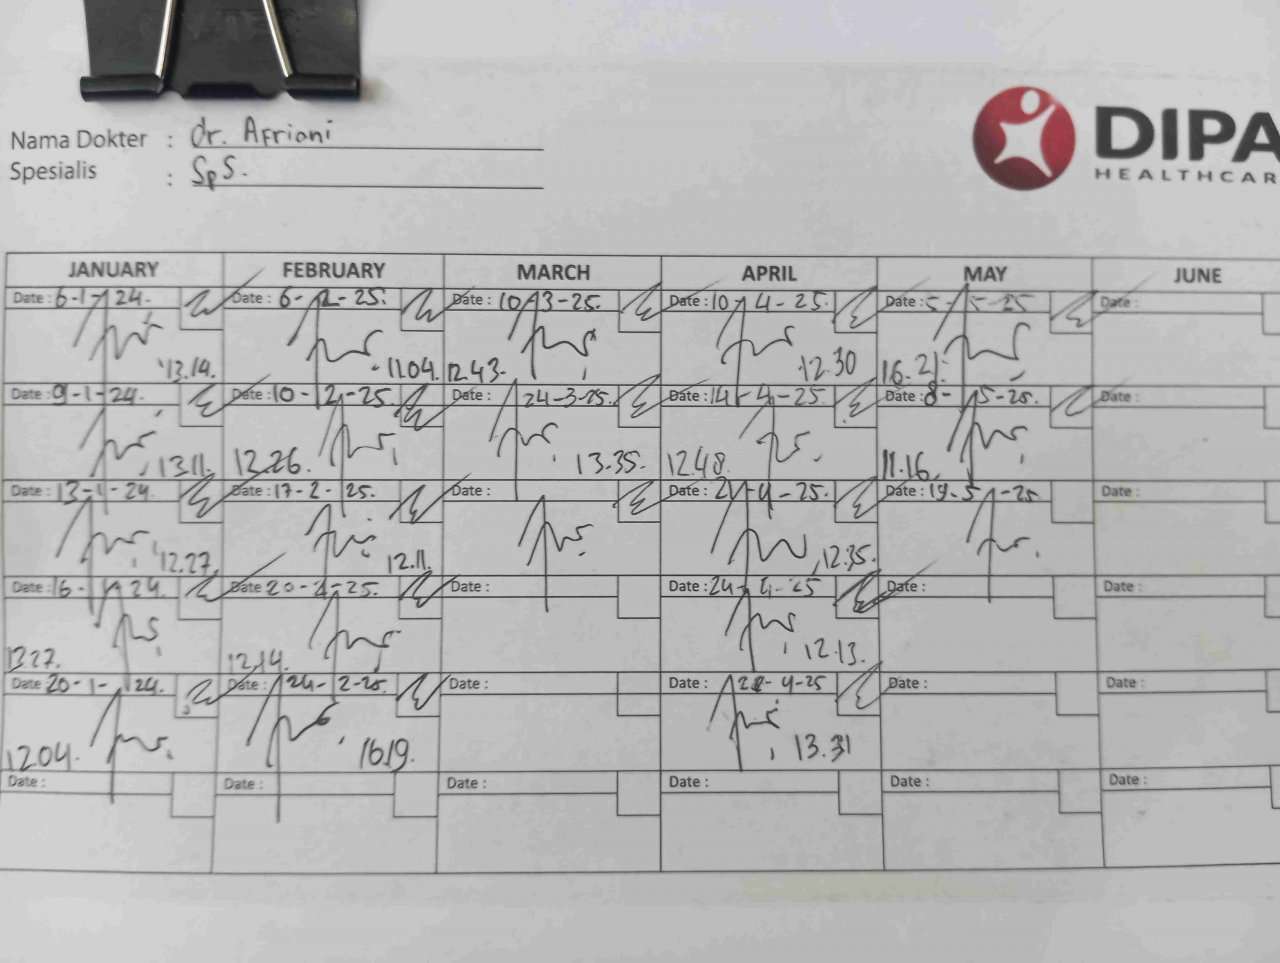 Nama Dokter : dr. Afriani
Spesialis : SpS.
DIPA
HEALTHCAR
JANUARY FEBRUARY MARCH APRIL MAY JUNE
Date : 6-1-24. Date : 6-2-25. Date : 10-3-25. Date : 10-4-25. Date : 5-5-25 Date :
13.14. 11.04. 12.43. 12.30 16.21.
Date : 9-1-24. Date : 10-2-25. Date : 24-3-25. Date : 14-4-25. Date : 8-5-25. Date :
13.11. 12.26. 13.35. 12.48. 11.16.
Date : 13-1-24. Date : 17-2-25. Date : Date : 21-4-25. Date : 19-5-25 Date :
12.27. 12.11. 12.35.
Date : 16-1-24. Date 20-2-25. Date : Date : 24-4-25 Date : Date :
12.14. 12.13.
Date 20-1-24. Date : 24-2-25. Date : Date : 28-4-25 Date : Date :
12.04. 16.19. 13.31
Date : Date : Date : Date : Date : Date :